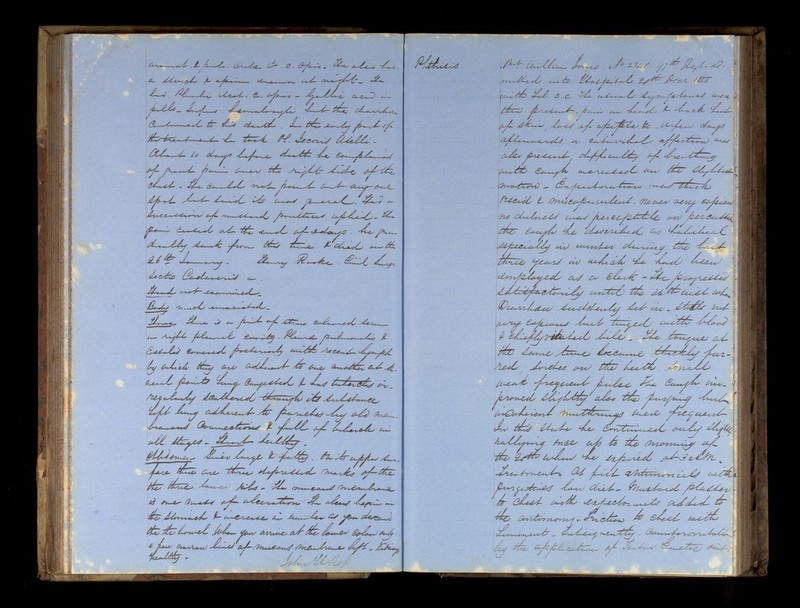 a starch & opium enema at night - He
had Plumbi Acet. c. opio - Gallic acid in
pills. Infus. Haematoxyli but the diarrhœa
continued to his death. In the early part of
the treatment he took Ol. Jecoris Aselli -
About 10 days before death he complained
of great pain over the right side of the
chest - He could not point out any one
spot but said it was general. This a
succession of mustard poultices applied. The
pain ceased at the end of 2 days. he gra-
dually sunk from this time & died on the
26th January. Henry Rooke. Civil Surg
Sectio Cadaveris -
Head not examined.
Body much emaciated.
Thorax There is a pint of straw coloured serum
in right pleural cavity. Pleura pulmonalis &
Costalis covered posteriorly with recent lymph
by which they are adherent to one another at se-
veral points. Lung congested & has tubercles ir-
regularly scattered through its substance
Left lung adherent to parietes by old mem-
branous connections & full of tubercle in
all stages - Heart healthy.
Abdomen Liver large & fatty. On its upper sur-
face there are three depressed marks of the
the three lower ribs - The mucous membrane
is one mass of ulceration. The ulcers begin in
the stomach & increase in number as you descend
the bowel. When you arrive at the lower colon only
a few narrow lines of mucous membrane left - Kidneys
healthy -
Phthisis
Pvt William Jones No 97th Regt. Ad-
mitted into Hospital
with Feb. C.C. The usual symptoms were
then present, pain in head & back heat
of skin, loss of appetite &c. A few days
afterwards a catarrhal affection was
also present, difficulty of breathing
with cough increased on the slightest
motion - Expectoration was thick
viscid & mucopurulent. never very copious
no dulness was perceptible on percussion
the cough he described as habitual
especially in winter during the last
three years in which he had been
employed as a clerk - He progressed
satisfactorily until the 16th inst when
Diarrhœa suddenly set in. Stools not
very copious but tinged with blood
& chiefly bile. The tongue at
the same time became thickly fur-
red, sordes on the teeth, small
weak frequent pulse. The cough im-
proved slightly also the purging but
incoherent mutterings were frequent
In this state he continued only slightly
rallying once up to the morning of
the 20th when he expired at
Treatment. At first antimonials with
purgatives low diet. Mustard plaster
to chest with expectorants added to
the antimony. Friction to chest with
liniment. Subsequently, counterirritation
by the application of